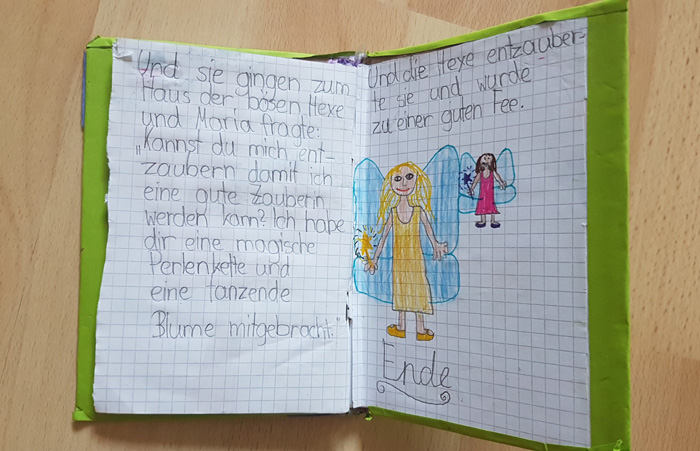 Und sie gingen zum
Haus der bösen Hexe
und Maria fragte:
„Kannst du mich ent-
zaubern damit ich
eine gute Zauberin
werden kann? Ich habe
dir eine magische
Perlenkette und
eine tanzende
Blume mitgebracht."
Und die Hexe entzauber-
te sie und wurde
zu einer guten Fee.
Ende